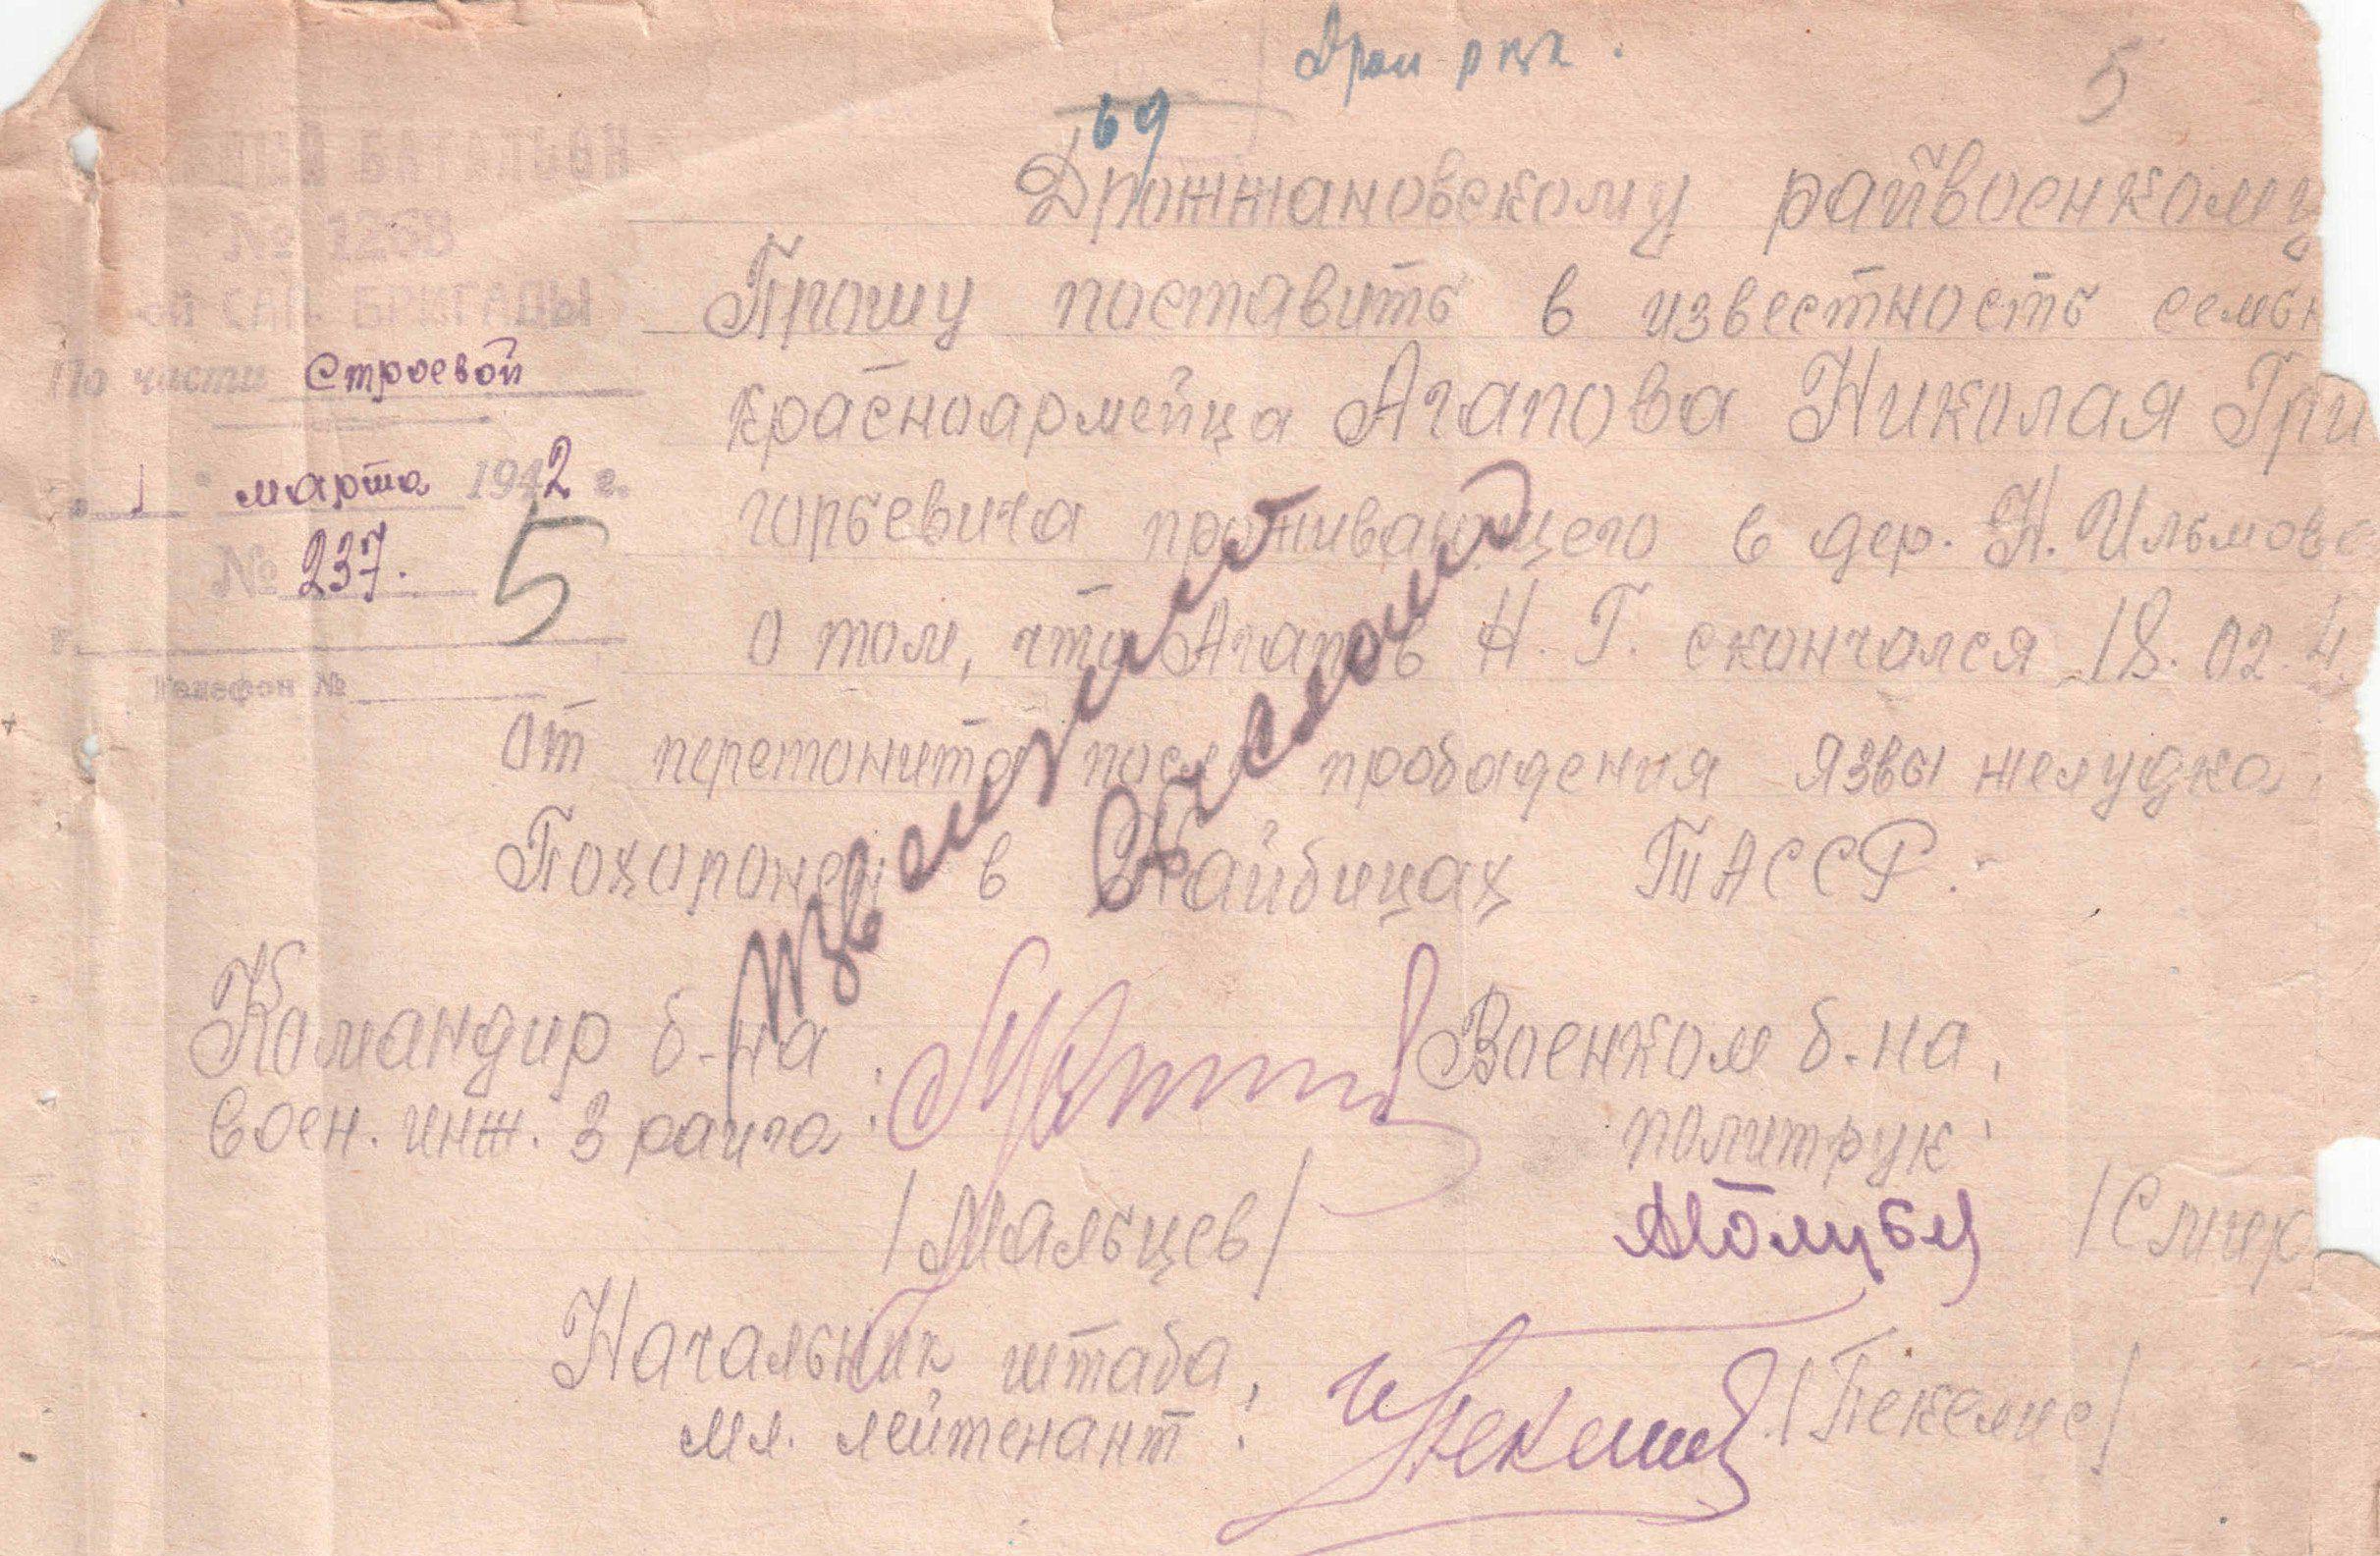 Дрож рвк.
69
5
БАТАЛЬОН
№ 1268
ой САП. БРИГАДЫ
По части Строевой
"1" марта 1942 г.
№ 237.
5
г.
Телефон №
Дрожжановскому райвоенкому
Прошу поставить в известность семью
красноармейца Агапова Николая Гри
горьевича проживающего в дер. Н. Ильмово
о том, что Агапов Н. Г. скончался 18. 02. 4
от перетонита после прободения язвы желудка.
Похоронен в Кайбицах ТАССР.
Извещение выслано
Командир б-на,
воен. инж. 3 ранга:
/Мальцев/
Военком б-на,
политрук:
Начальник штаба,
мл. лейтенант:
/Пекелис/